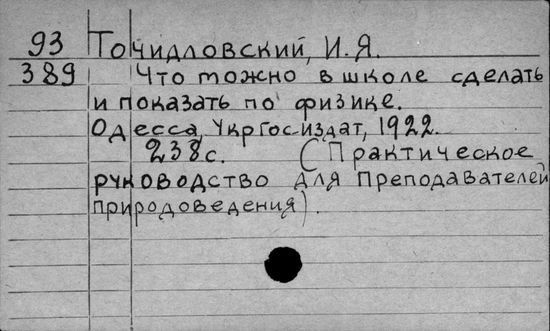 93 Точидловский, И.Я.
389 Что можно в школе сделать
и показать по физике.
Одесса, Укргосиздат, 1922.
238с. (Практическое
руководство для преподавателей
природоведения).